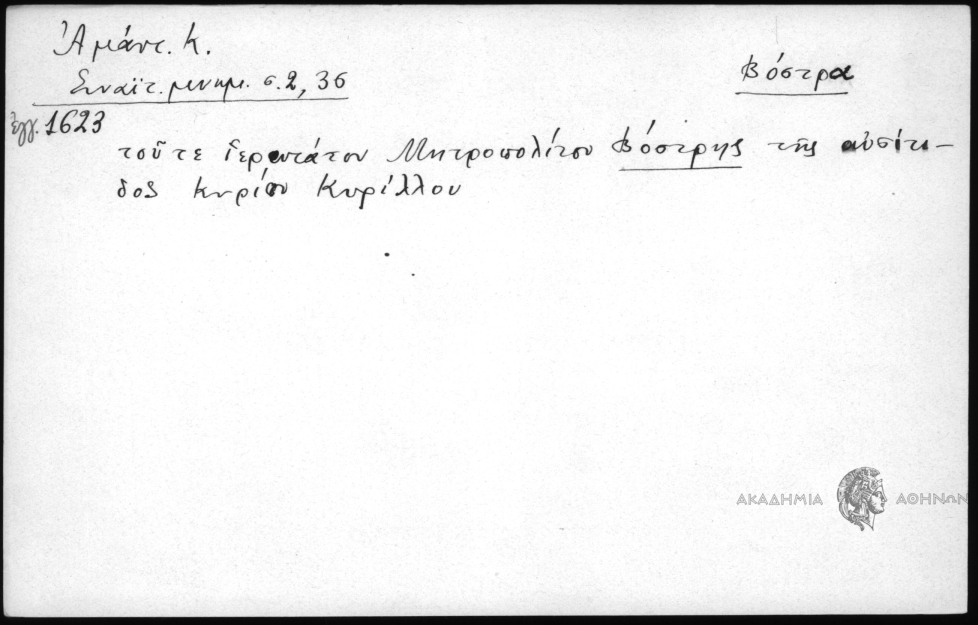 Ἀμάντ. Κ.
Σιναϊτ. μνημ. σ. 2, 36
Βόστρα
ἐγγ. 1623
τοῦ τε ἱερωτάτου Μητροπολίτου Βόστρης τῆς αὐσίτι-
δος κυρίου Κυρίλλου
ΑΚΑΔΗΜΙΑ ΑΘΗΝΩΝ